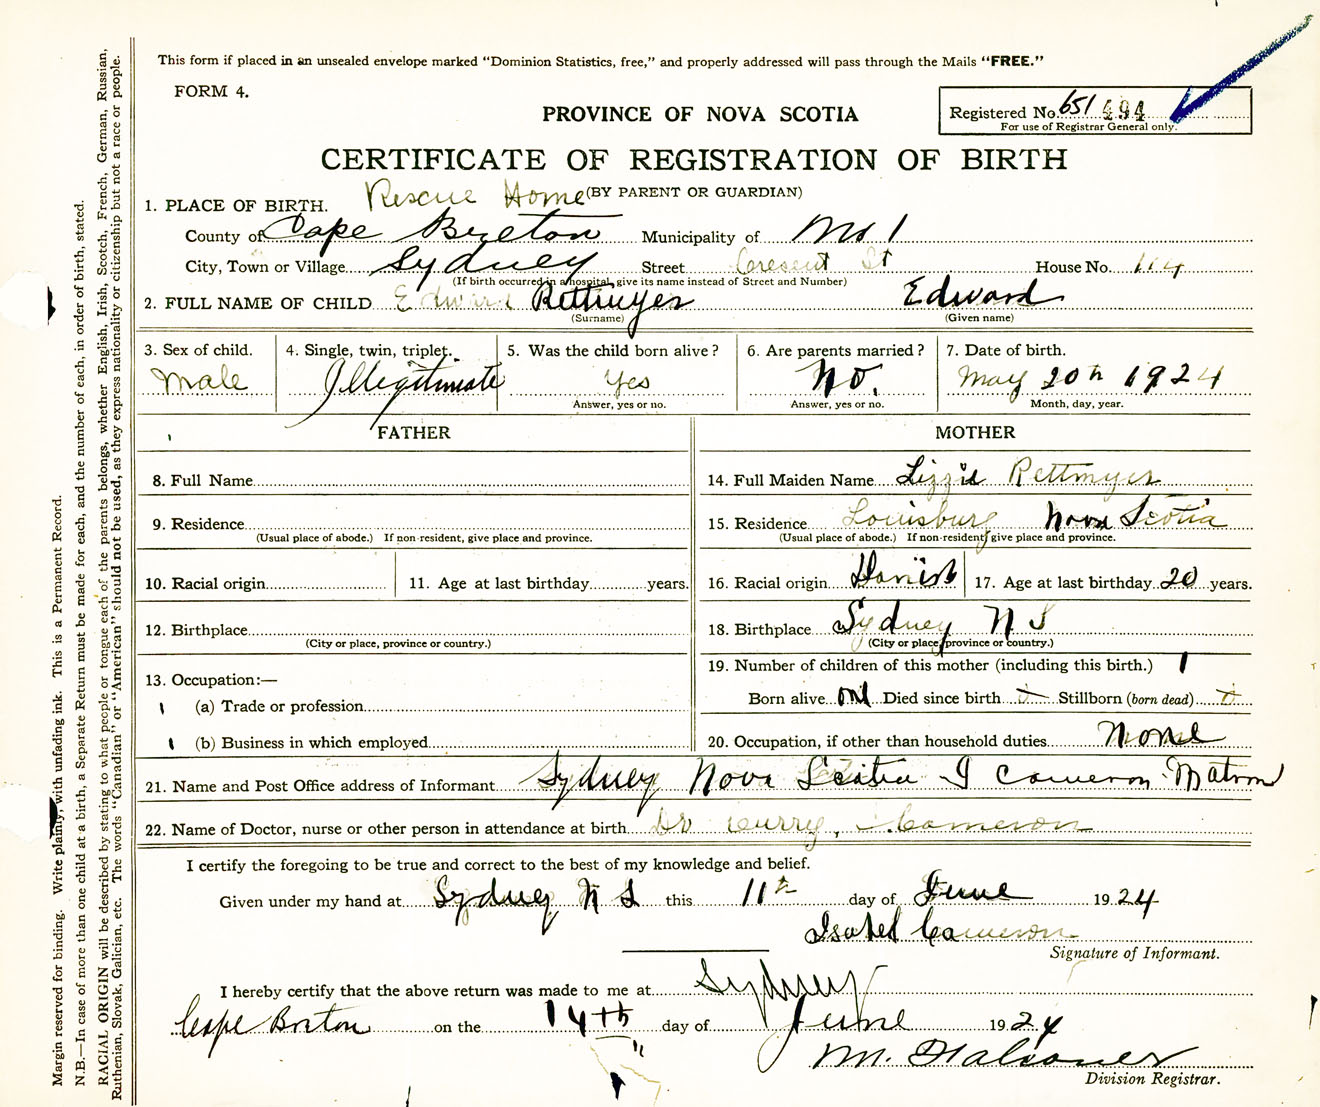 This form if placed in an unsealed envelope marked "Dominion Statistics, free," and properly addressed will pass through the Mails "FREE."
FORM 4.
PROVINCE OF NOVA SCOTIA
Registered No. 651 494
For use of Registrar General only.
CERTIFICATE OF REGISTRATION OF BIRTH
(BY PARENT OR GUARDIAN)
1. PLACE OF BIRTH. Rescue Home
County of Cape Breton Municipality of No 1
City, Town or Village Sydney Street Cresent St House No. 114
(If birth occurred in a hospital, give its name instead of Street and Number)
2. FULL NAME OF CHILD Edward Rettmyer Edward
(Surname) (Given name)
3. Sex of child. 4. Single, twin, triplet. 5. Was the child born alive? 6. Are parents married? 7. Date of birth.
Male Illegitimate Yes No. May 20th 1924
Answer, yes or no. Answer, yes or no. Month, day, year.
FATHER MOTHER
8. Full Name 14. Full Maiden Name Lizzie Rettmyer
9. Residence 15. Residence Louisburg Nova Scotia
(Usual place of abode.) If non-resident, give place and province. (Usual place of abode.) If non-resident, give place and province.
10. Racial origin 11. Age at last birthday years. 16. Racial origin Danish 17. Age at last birthday 20 years.
12. Birthplace 18. Birthplace Sydney N S
(City or place, province or country.) (City or place, province or country.)
19. Number of children of this mother (including this birth.) 1
13. Occupation:—
(a) Trade or profession Born alive one Died since birth Stillborn (born dead)
(b) Business in which employed 20. Occupation, if other than household duties None
21. Name and Post Office address of Informant Sydney Nova Scotia I Cameron Matron
22. Name of Doctor, nurse or other person in attendance at birth Dr Curry, Cameron
I certify the foregoing to be true and correct to the best of my knowledge and belief.
Given under my hand at Sydney N S this 11th day of June 1924
Isabel Cameron
Signature of Informant.
I hereby certify that the above return was made to me at Sydney
Cape Breton on the 14th day of June 1924
M.
Division Registrar.
Margin reserved for binding. Write plainly, with unfading ink. This is a Permanent Record.
N.B.—In case of more than one child at a birth, a Separate Return must be made for each, and the number of each, in order of birth, stated.
RACIAL ORIGIN will be described by stating to what people or tongue each of the parents belongs, whether English, Irish, Scotch, French, German, Russian,
Ruthenian, Slovak, Galician, etc. The words "Canadian" or "American" should not be used, as they express nationality or citizenship but not a race or people.